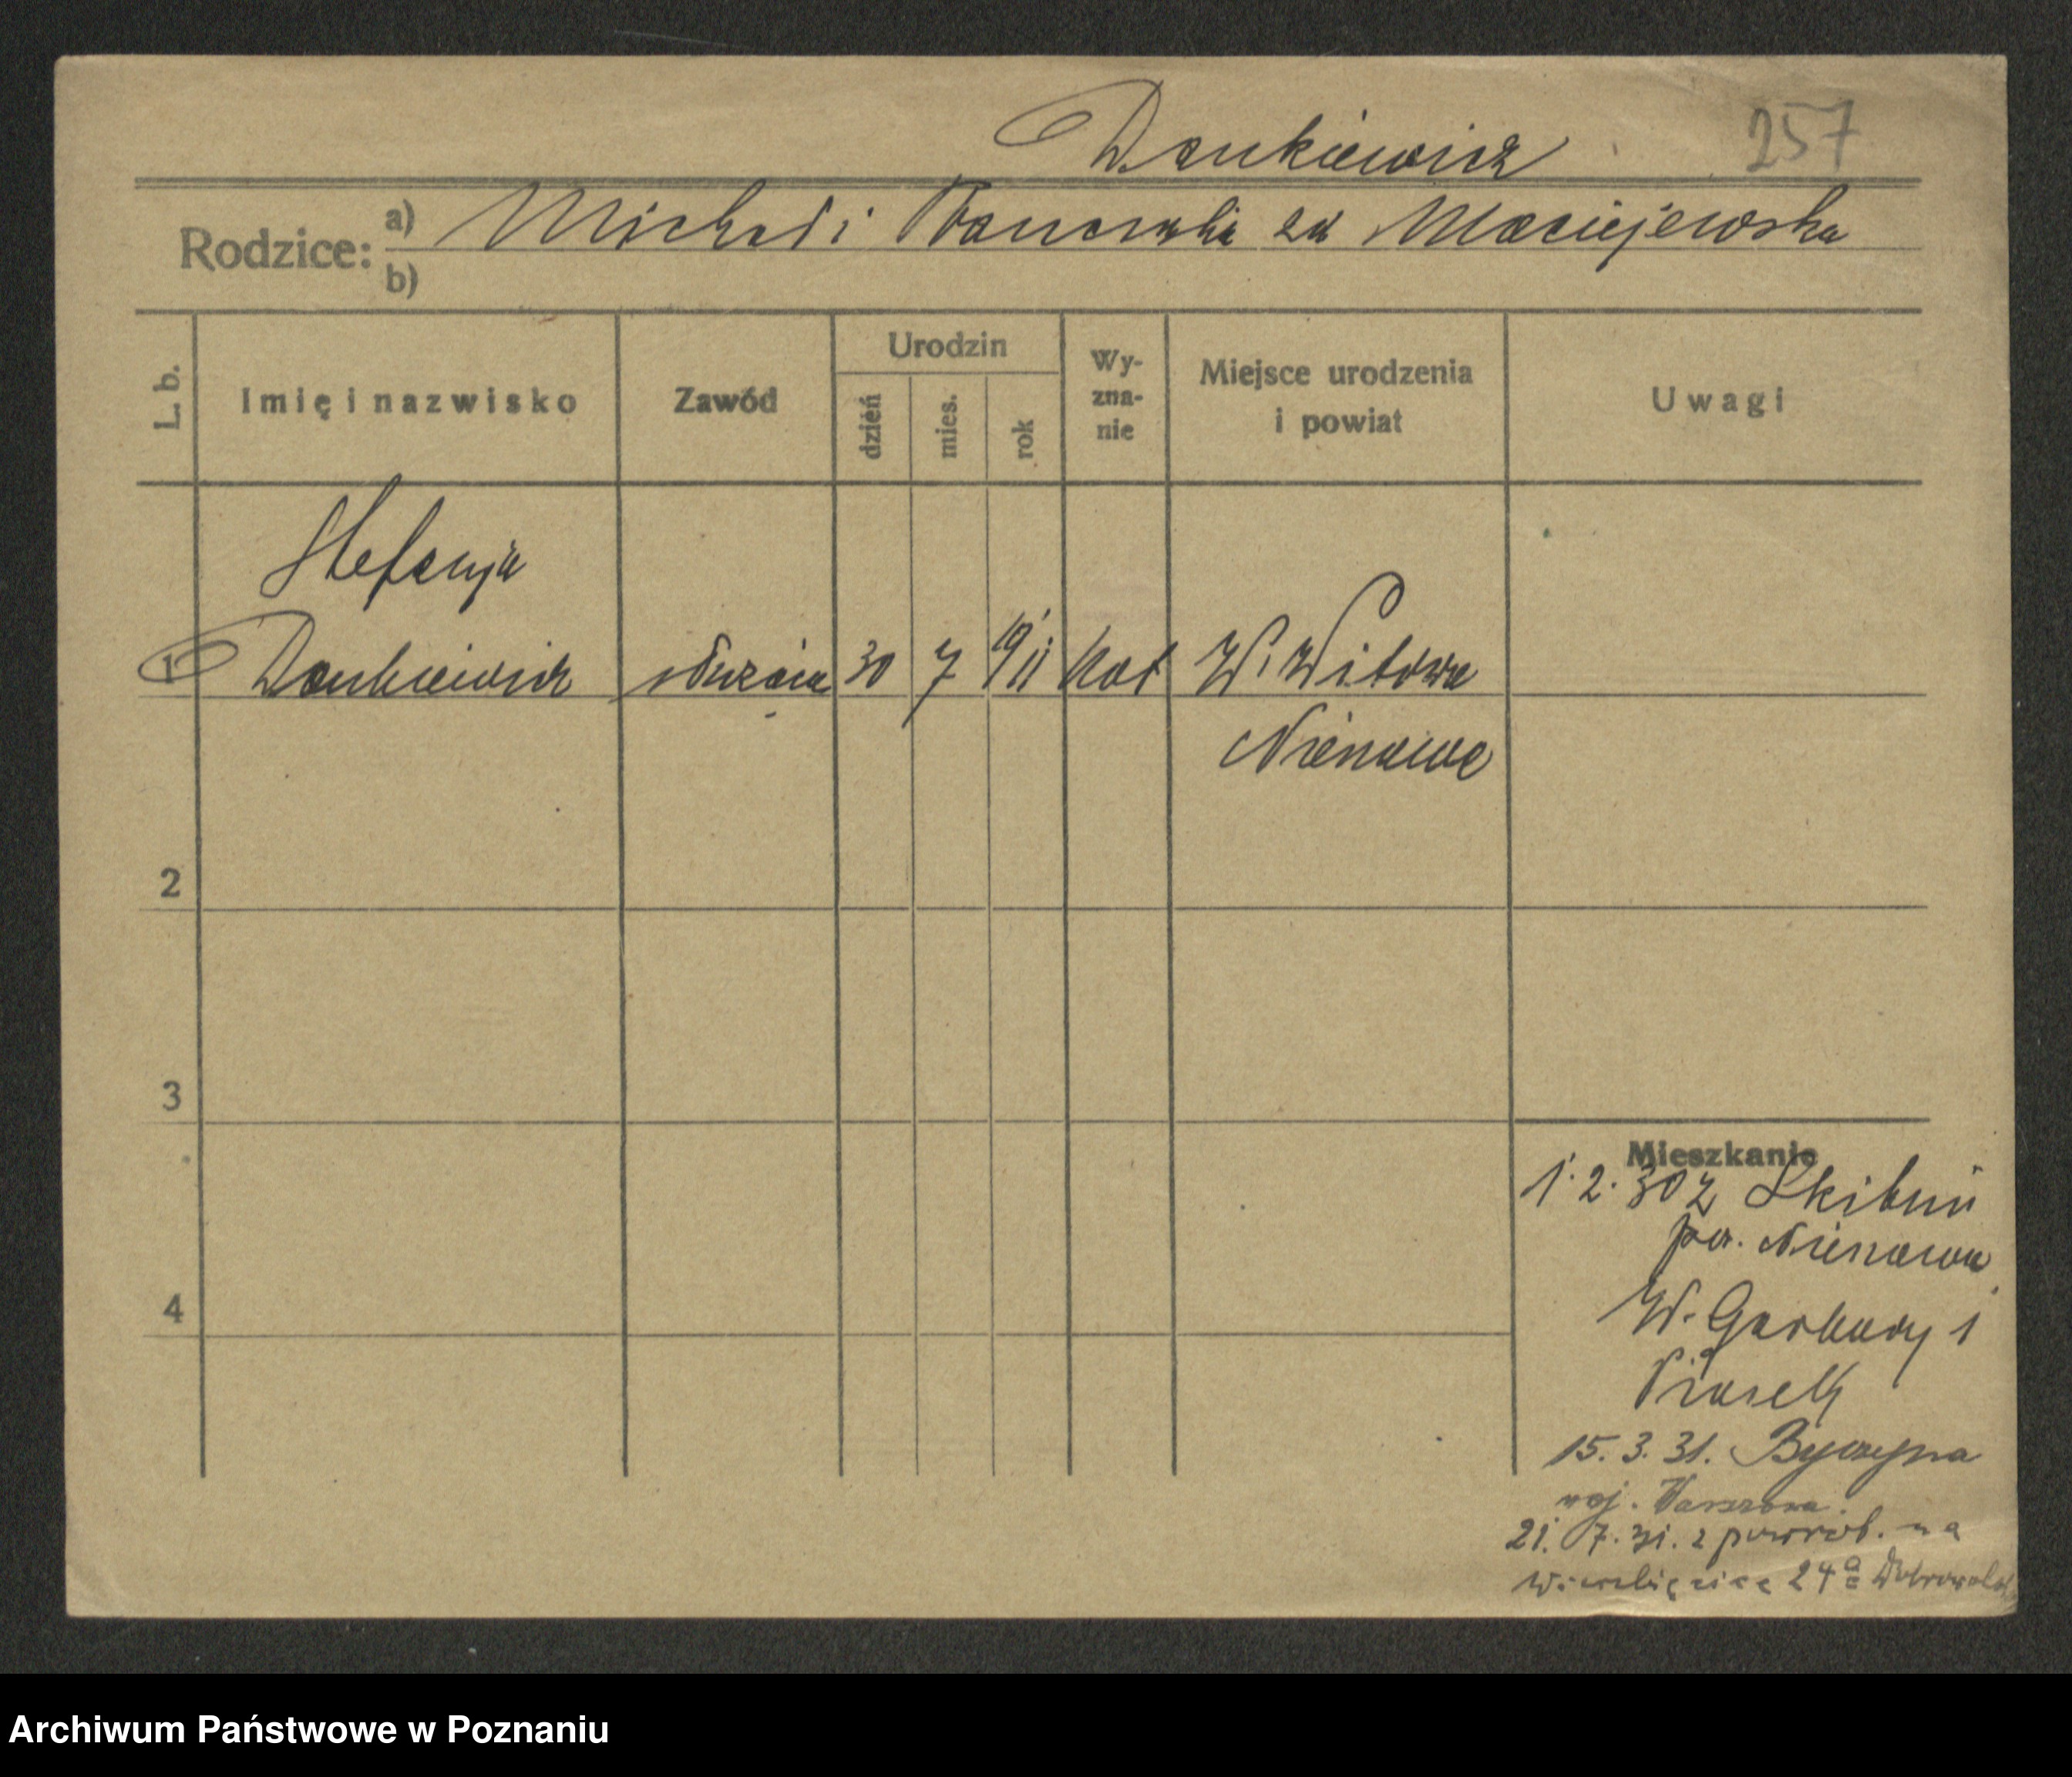 Dankiewicz 257
Rodzice: a) Michał i Franciszka zd Maciejewska
b)
L. b. Imię i nazwisko Zawód Urodzin dzień mies. rok Wyznanie Miejsce urodzenia i powiat Uwagi
Stefanja
1 Dankiewicz służąca 30 7 1911 kat W. Witowa
Nieszawa
2
3
4
Mieszkanie
1.2.30 z Skibin
pow. Nieszawa
W. Garbary 1
15.3.31. Byczyna
woj. Warszawa.
21.7.31. z powrot. na
Wierzbięcice 24a
Archiwum Państwowe w Poznaniu